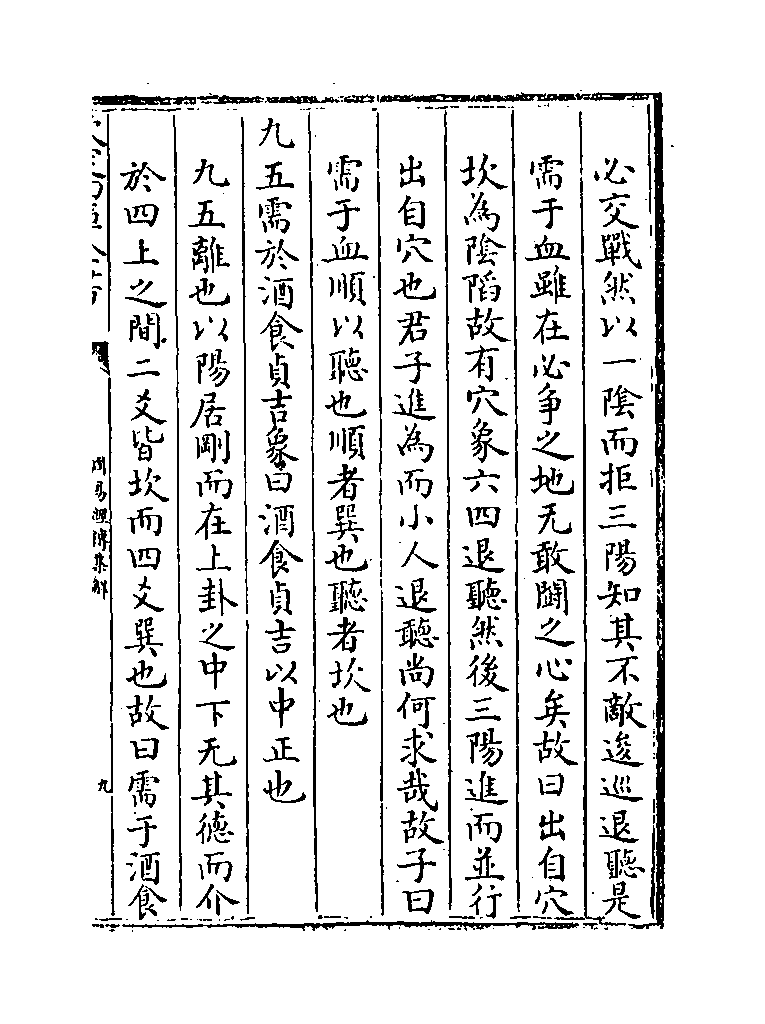 必交戰然以一陰而拒三陽知其不敵逡巡退聽是
需于血雖在必争之地无敢鬬之心矣故曰出自穴
坎為陰陷故有穴象六四退聽然後三陽進而並行
出自穴也君子進為而小人退聽尚何求哉故子曰
需于血順以聽也順者巽也聽者坎也
九五需於酒食貞吉象曰酒食貞吉以中正也
九五離也以陽居剛而在上卦之中下无其德而介
於四上之間二爻皆坎而四爻巽也故曰需于酒食
周易經傳集解
九